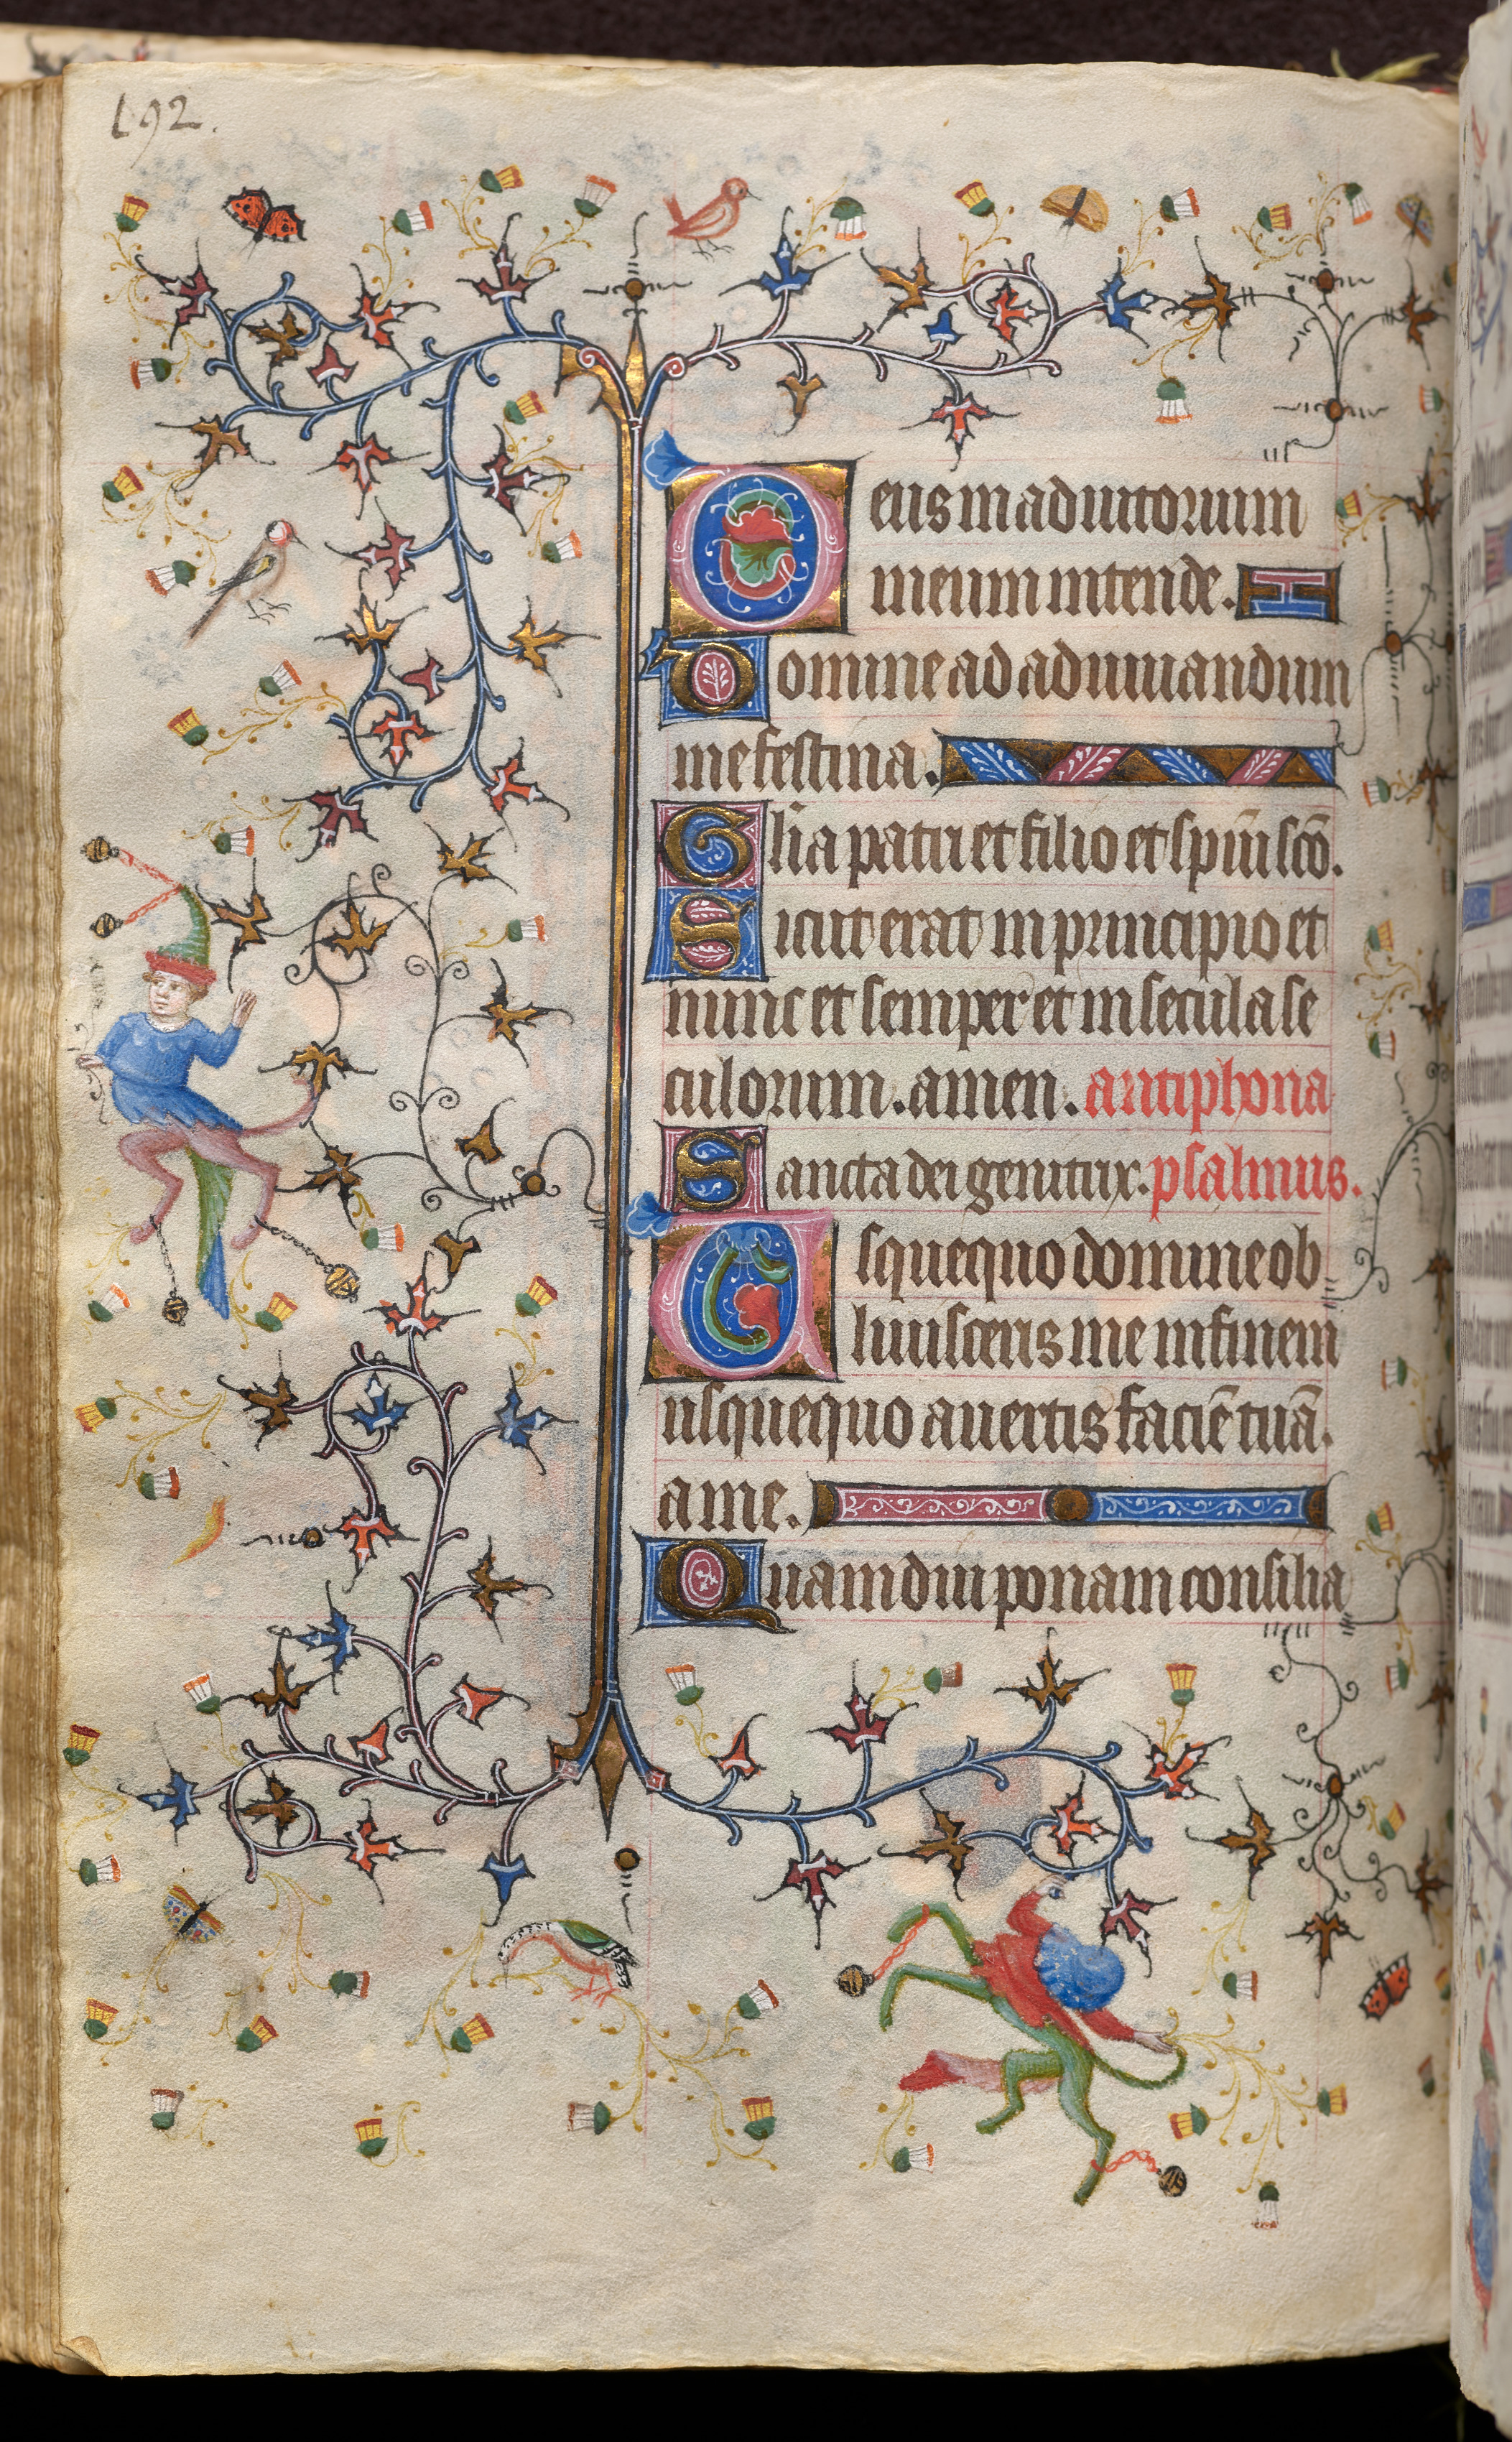 192.
Deus in adiutorium
meum intende.
Domine ad adiuuandum
me festina.
Glia patri et filio et spiritui sco.
Sicut erat in principio et
nunc et semper et in secula se
culorum. amen. antiphona
Sancta dei genitrix. psalmus.
Usquequo domine ob
liuisceris me in finem
usquequo auertis faciē tuā.
a me.
Quamdiu ponam consilia